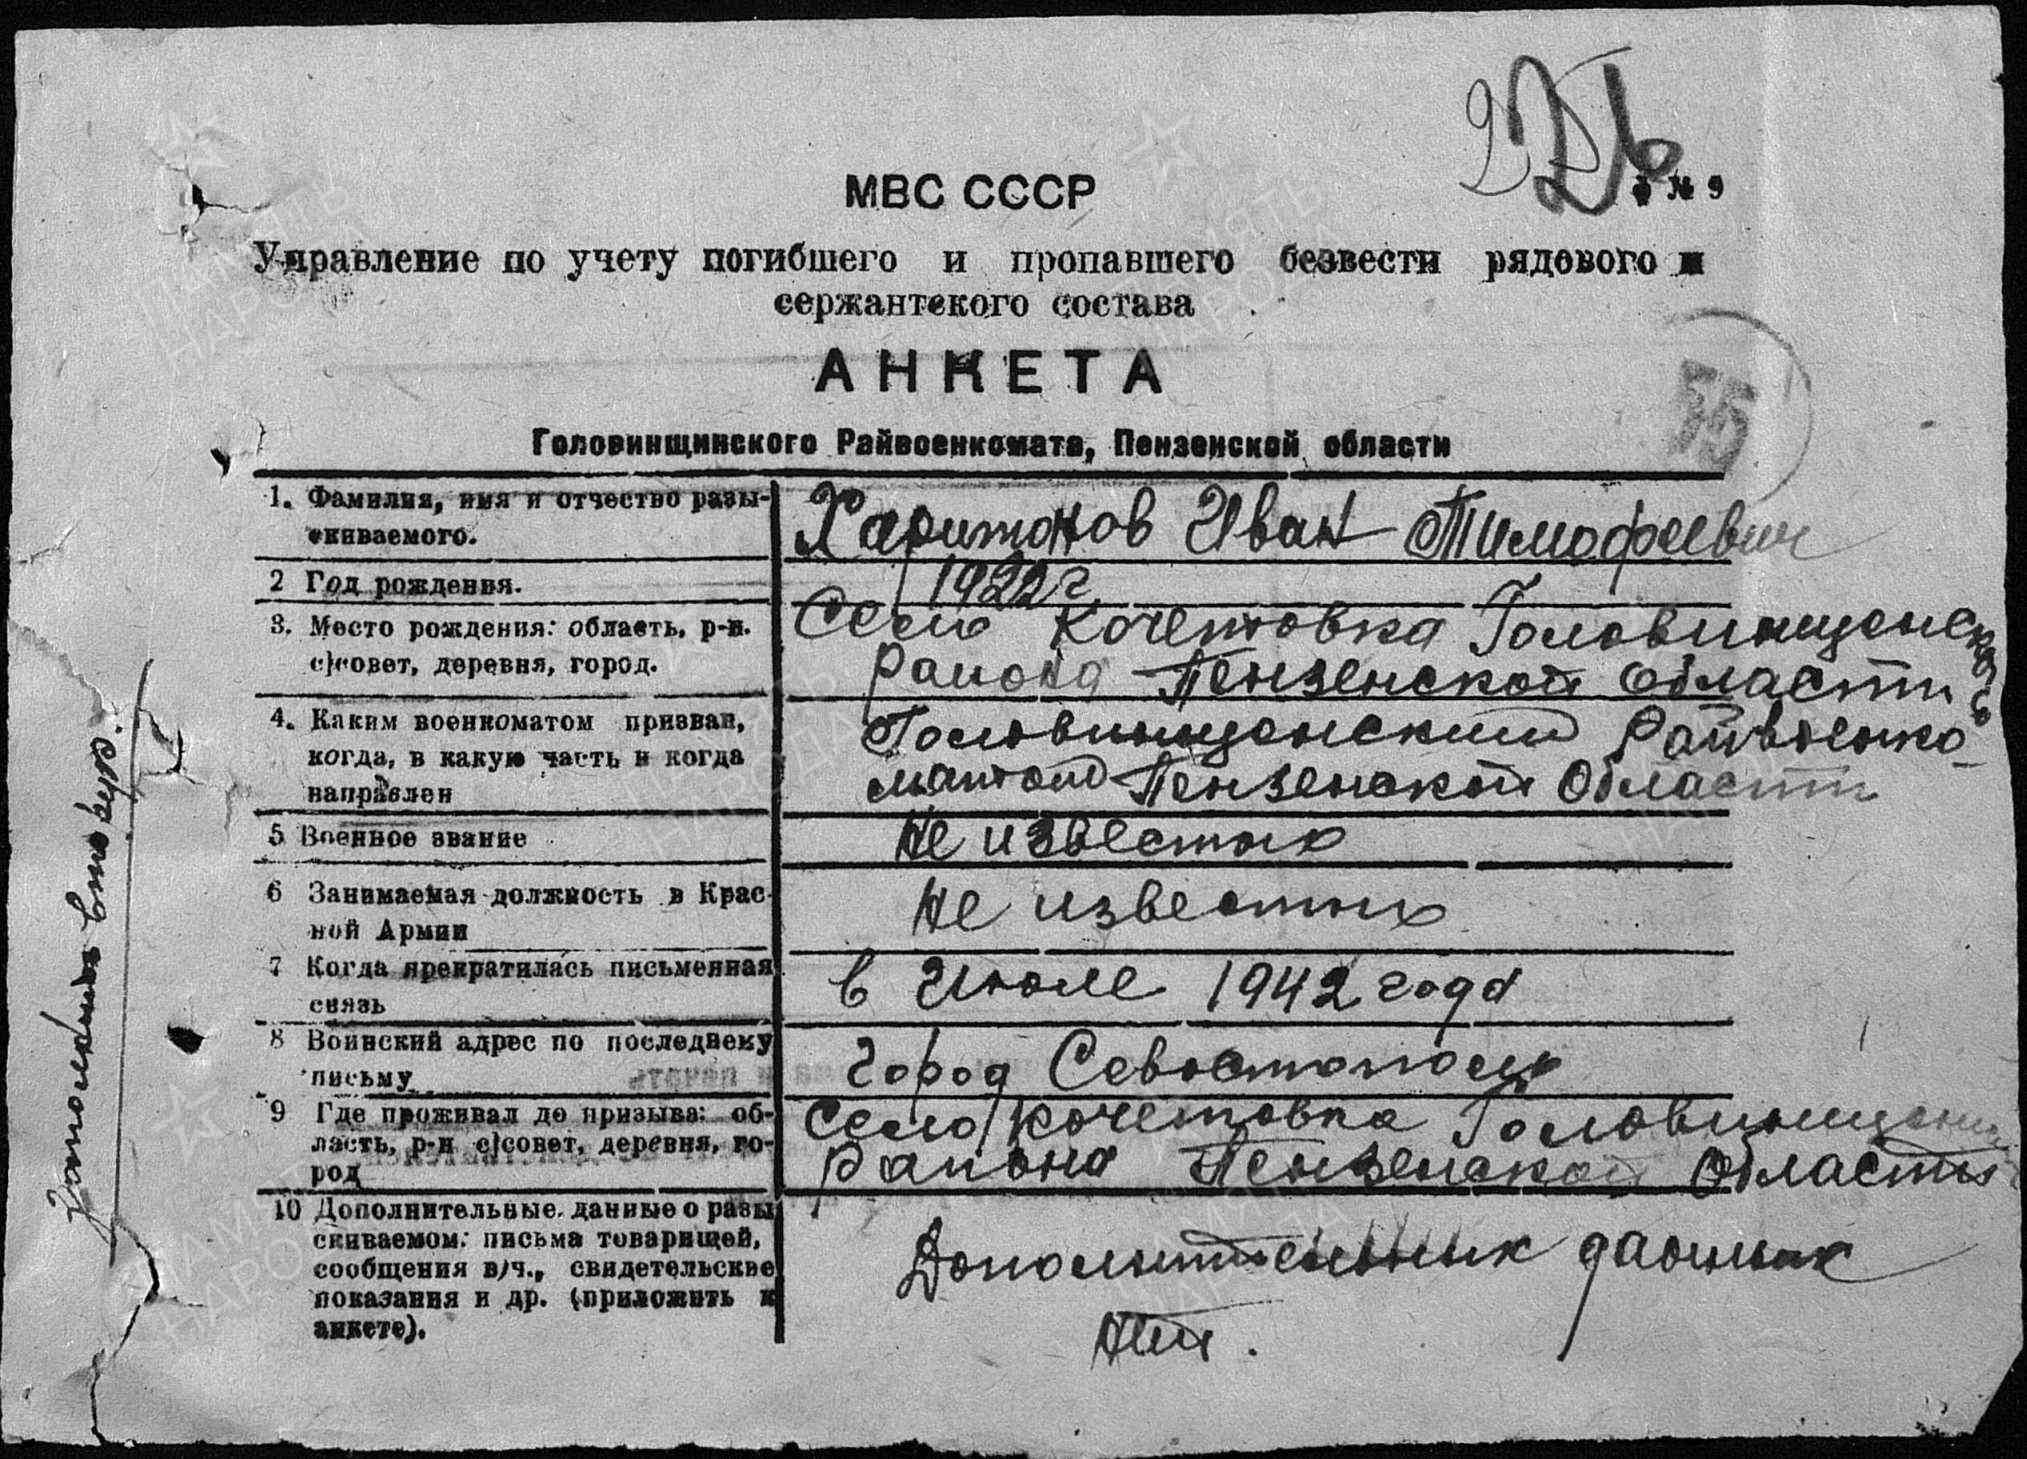 МВС СССР
ф № 9
Управление по учету погибшего и пропавшего безвести рядового и
сержантского состава
АНКЕТА
75
Головинщинского Райвоенкомата, Пензенской области
1. Фамилия, имя и отчество разы-
скиваемого.
Харитонов Иван Тимофеевич
2 Год рождения.
1922 г
3. Место рождения: область, р-н.
с)совет, деревня, город.
Село Кочетовка Головинщенского
района Пензенской Области
4. Каким военкоматом призван,
когда, в какую часть и когда
направлен
Головинщенским Райвоенко-
матом Пензенской Области
5 Военное звание
Не известно
6 Занимаемая должность в Крас-
ной Армии
Не известно
7 Когда прекратилась письменная
связь
в Июле 1942 года
8 Воинский адрес по последнему
письму
город Севостополь
9 Где проживал до призыва: об-
ласть, р-н с)совет, деревня, го-
род
Село Кочетовка Головинщен
района Пензенской Области
10 Дополнительные данные о разы
скиваемом: письма товарищей,
сообщения в/ч., свидетельские
показания и др. (приложить к
анкете).
Дополнительных данных
нет.